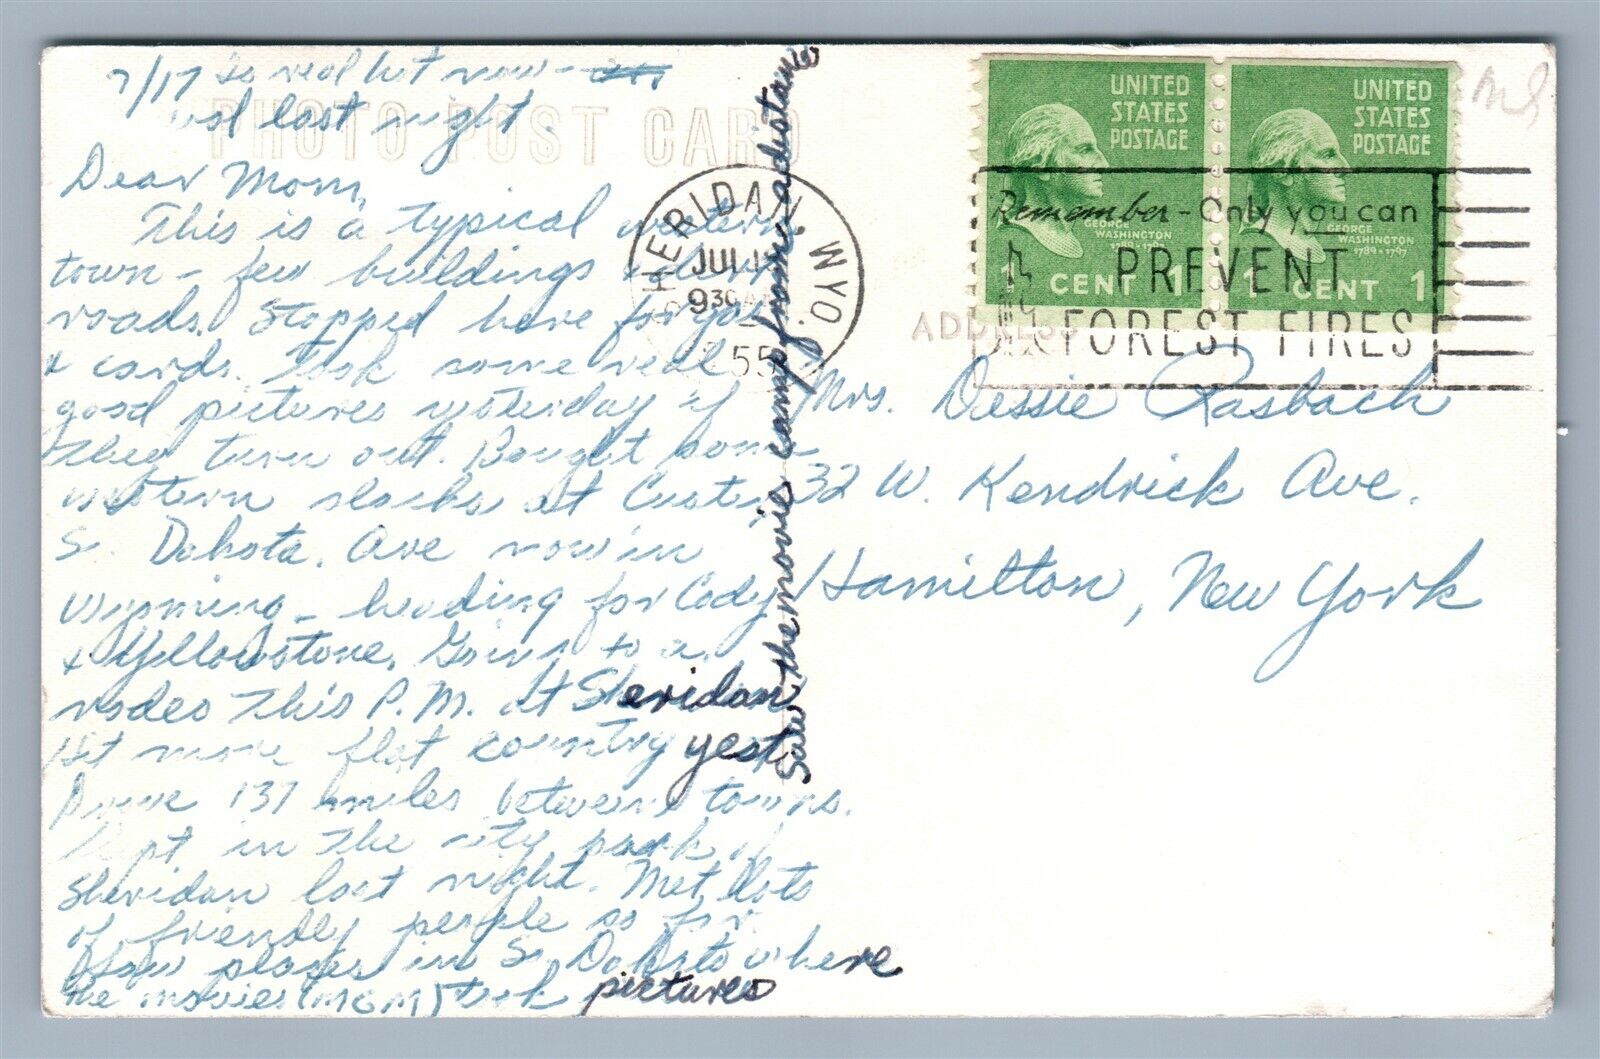 7/17 Is real hot now -
cool last night.
PHOTO POST CARD
Dear Mom,
This is a typical western
town - few buildings &
roads. Stopped here for gas
& cards. Took some real
good pictures yesterday if
they turn out. Bought some
western slacks at Custer,
S. Dakota. Are now in
Wyoming - heading for Cody
& Yellowstone. Going to a
rodeo this P.M. at Sheridan
Hit more flat country yest.
Drove 137 miles between towns.
Slept in the city park of
Sheridan last night. Met lots
of friendly people so far.
Saw places in So. Dakota where
the movies (MGM) took pictures
Saw the movie camp from a distance
SHERIDAN, WYO.
JUL
930 AM
55
UNITED
STATES
POSTAGE
GEORGE
WASHINGTON
1789-1797
1 CENT 1
UNITED
STATES
POSTAGE
GEORGE
WASHINGTON
1789-1797
1 CENT 1
Remember - Only you can
PREVENT
FOREST FIRES
ADDRESS
Mrs. Dessie Rasbach
32 W. Kendrick Ave.
Hamilton, New York